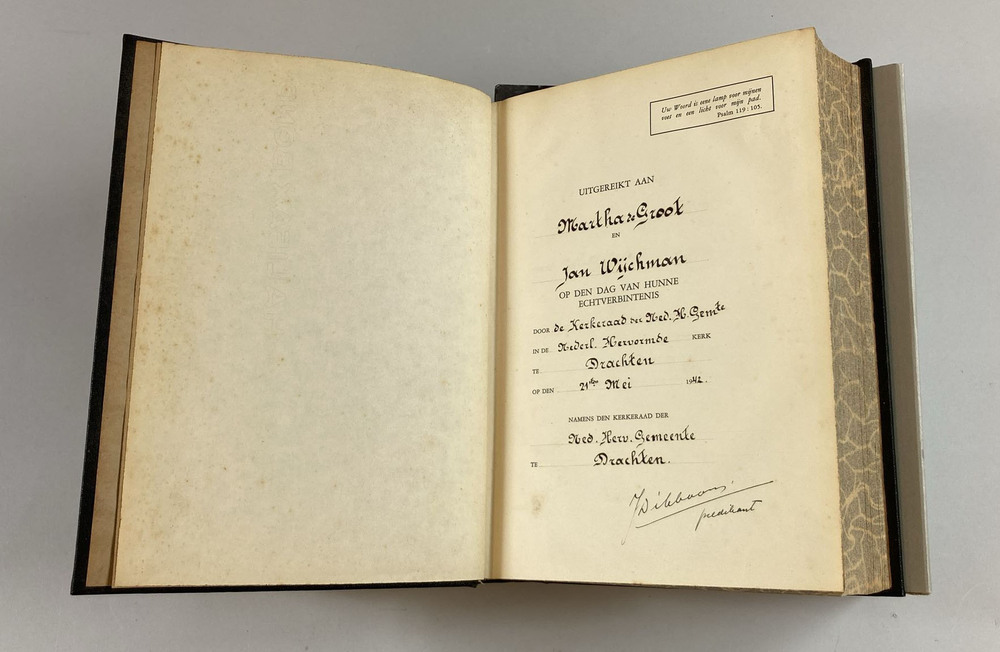 Uw Woord is eene lamp voor mijnen
voet en een licht voor mijn pad.
Psalm 119 : 105.
UITGEREIKT AAN
Martha de Groot
EN
Jan Wijchman
OP DEN DAG VAN HUNNE
ECHTVERBINTENIS
DOOR de Kerkeraad der Ned. H. Gemte
IN DE Nederl. Hervormde KERK
TE Drachten
OP DEN 21sten Mei 1942.
NAMENS DEN KERKERAAD DER
Ned. Herv. Gemeente
TE Drachten.
predikant